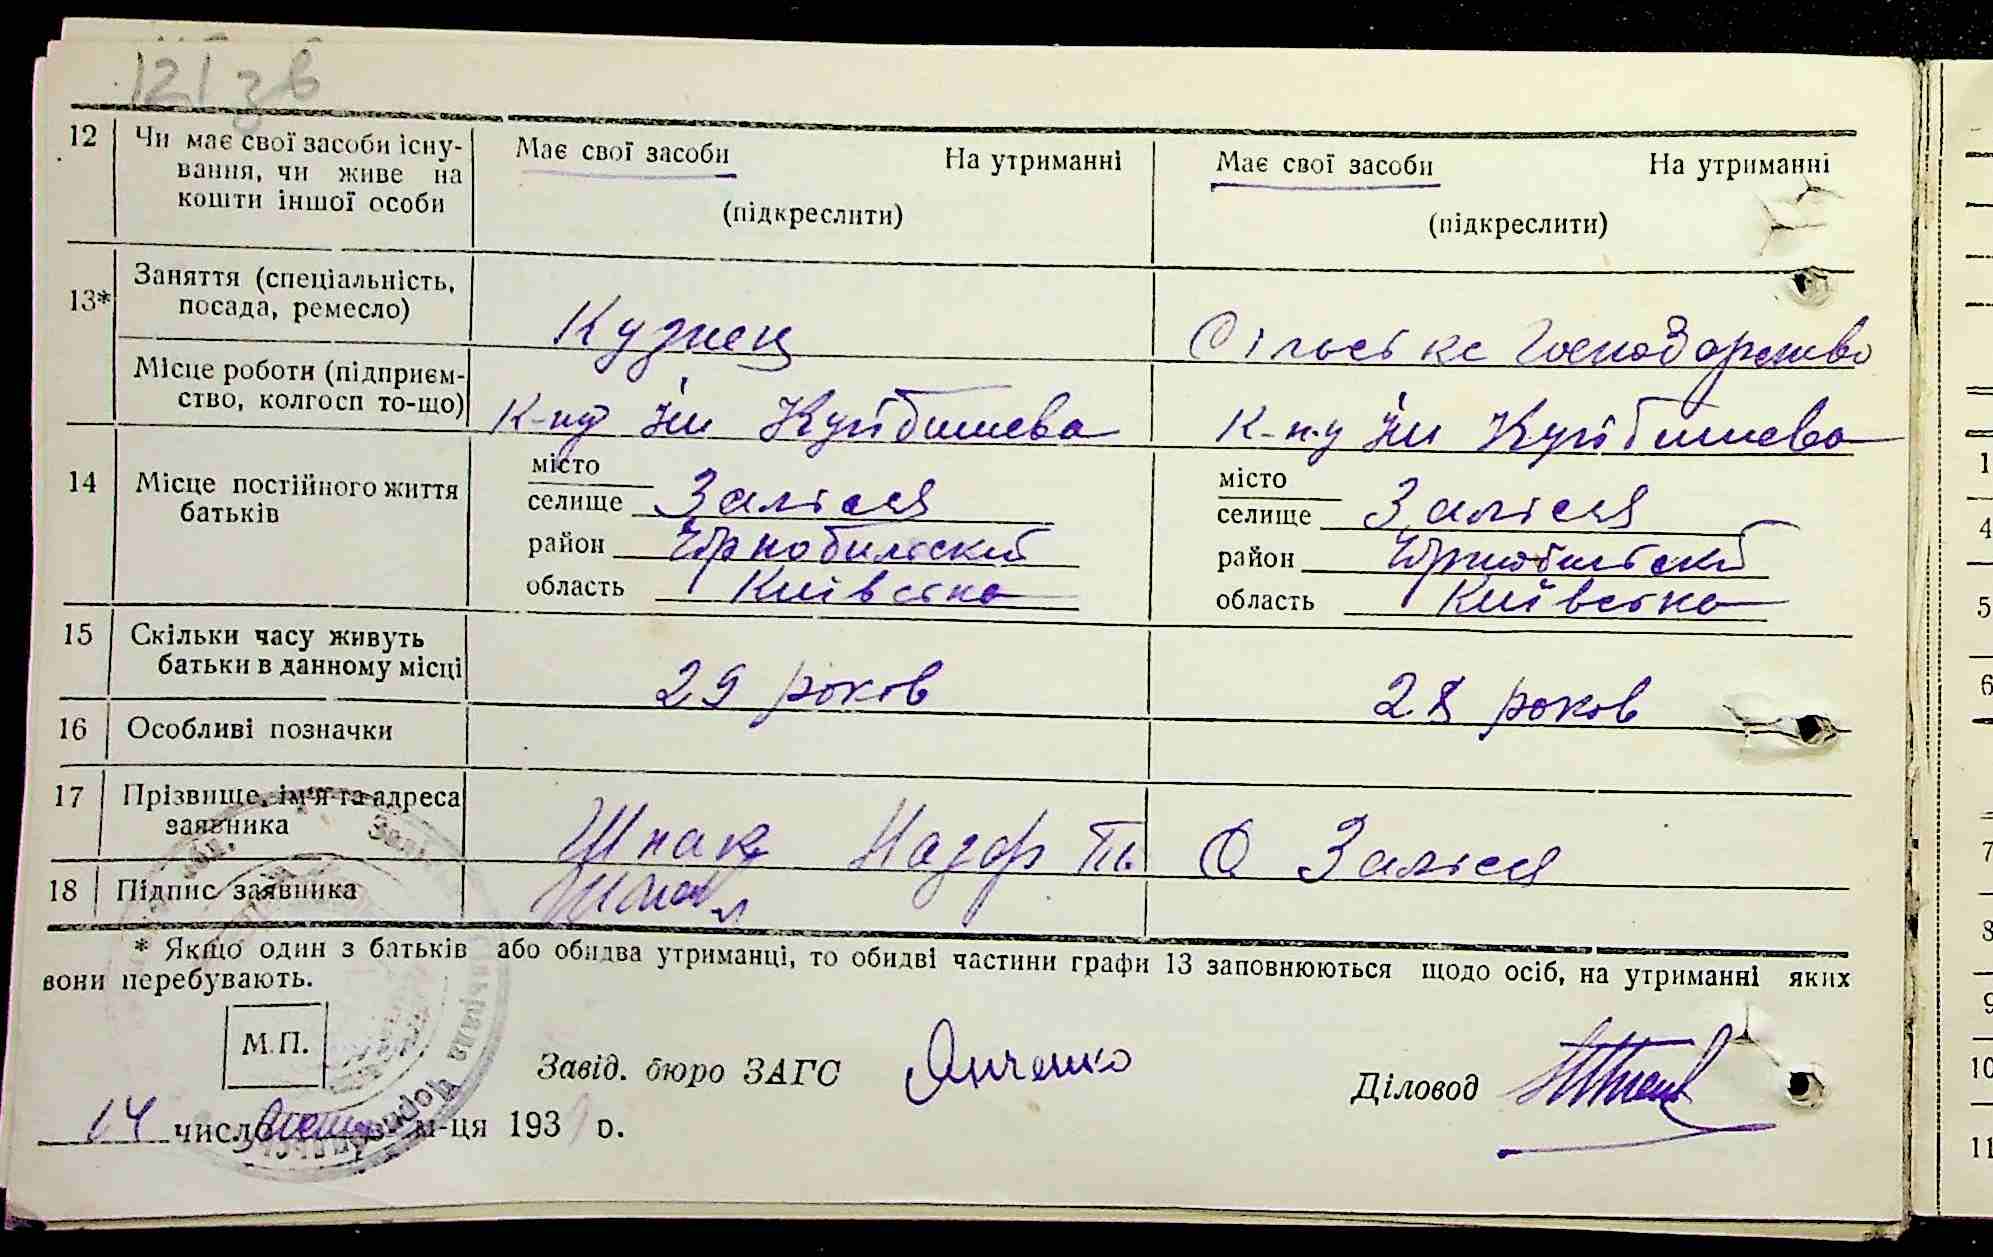 121 зв
12 Чи має свої засоби існу- Має свої засоби На утриманні Має свої засоби На утриманні
вання, чи живе на
кошти іншої особи (підкреслити) (підкреслити)
13* Заняття (спеціальність,
посада, ремесло) Кузнец Сільське Господарство
Місце роботи (підприєм-
ство, колгосп то-що) К-пу Ім Куйбишева К-п-у Ім Куйбишева
14 Місце постійного життя місто місто
батьків селище Залісся селище Залісся
район Чорнобильский район Чорнобильский
область Київська область Київська
15 Скільки часу живуть
батьки в данному місці 29 років 28 років
16 Особливі позначки
17 Прізвище, ім'я та адреса
заявника Шпак Назар С Залісся
18 Підпис заявника
* Якщо один з батьків або обидва утриманці, то обидві частини графи 13 заповнюються щодо осіб, на утриманні яких
вони перебувають.
М.П.
Завід. бюро ЗАГС Янченко Діловод
14 число м-ця 193 р.
1
4
5
6
7
8
9
10
11